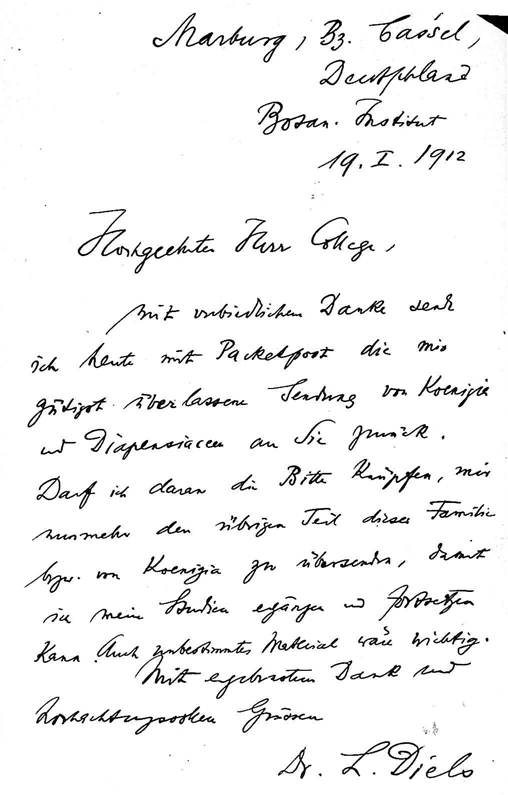 Marburg, Bz. Cassel,
Deutschland
Botan. Institut
19. I. 1912
Hochgeehrter Herr College,
mit verbindlichem Danke sende
ich heute mit Packetpost die mir
gütigst überlassene Sendung von Koenigia
und Diapensiaceen an Sie zurück.
Darf ich daran die Bitte knüpfen, mir
nunmehr den übrigen Teil dieser Familie
bzw. von Koenigia zu übersenden, damit
ich meine Studien ergänzen und fortsetzen
kann. Auch unbestimmtes Material wäre wichtig.
Mit ergebenstem Dank und
hochachtungsvollen Grüssen
Dr. L. Diels